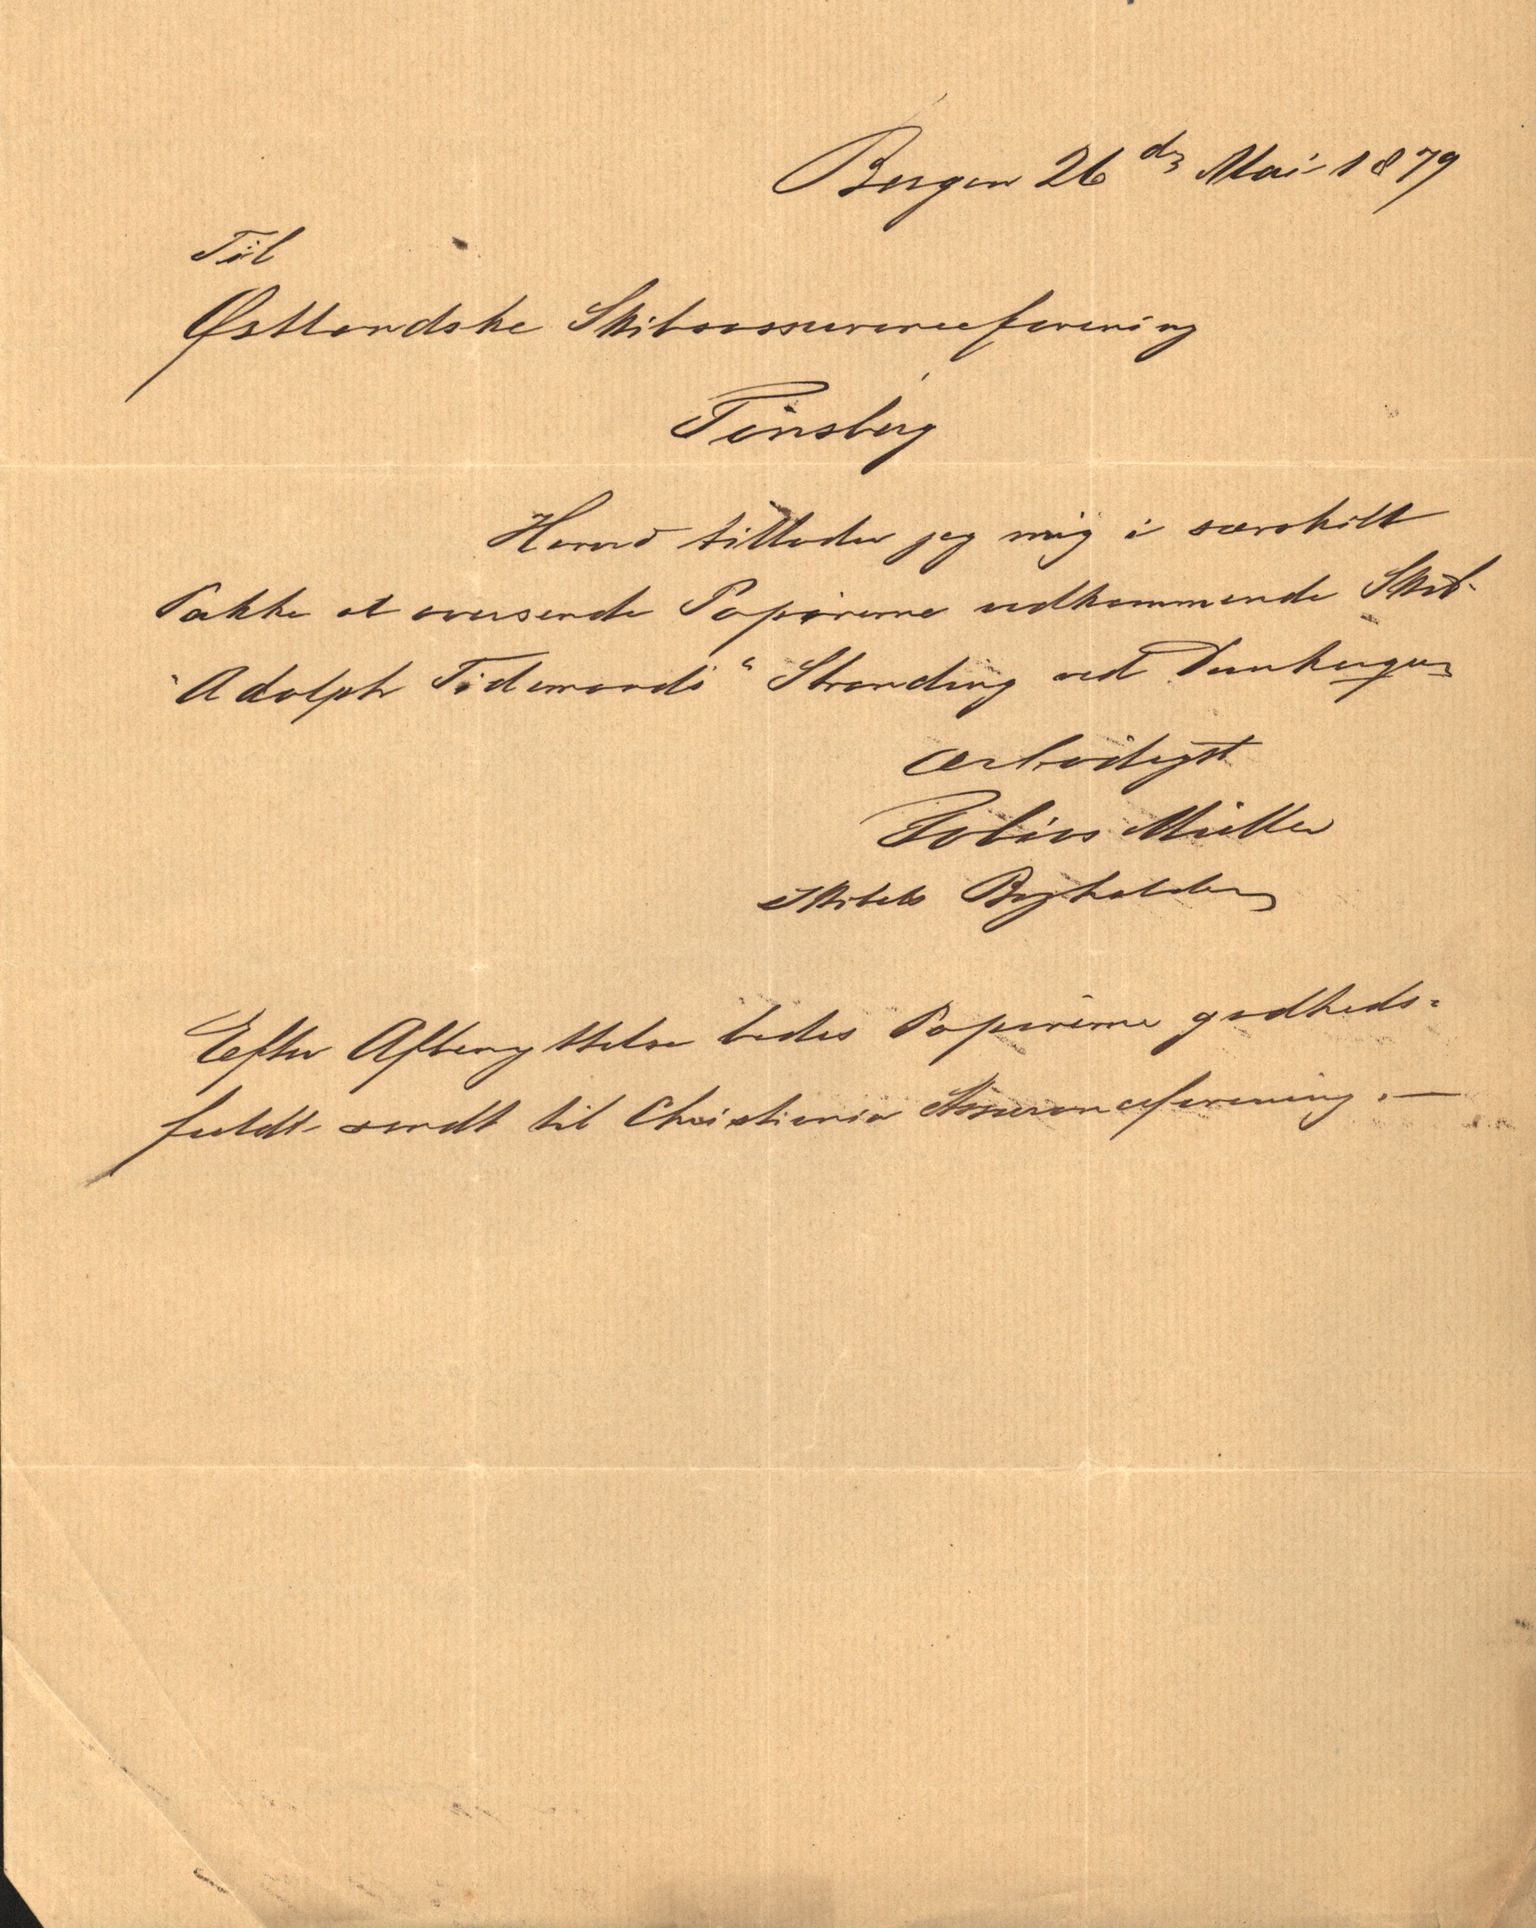 Bergen 26de Mai 1879
Til
Østlandske Skibsassuranceforening
Tønsberg
Herved tillader jeg mig i særskilt
Pakke at oversende Papirerne vedkommende Skib
"Adolph Tidemands" Stranding ved Dunkerque
Ærbødigst
Tobias Müller
Skibets Bogholder
Efter Afbenyttelse bedes Papirerne godheds=
fuldt sendt til Christiania Assuranceforening. —